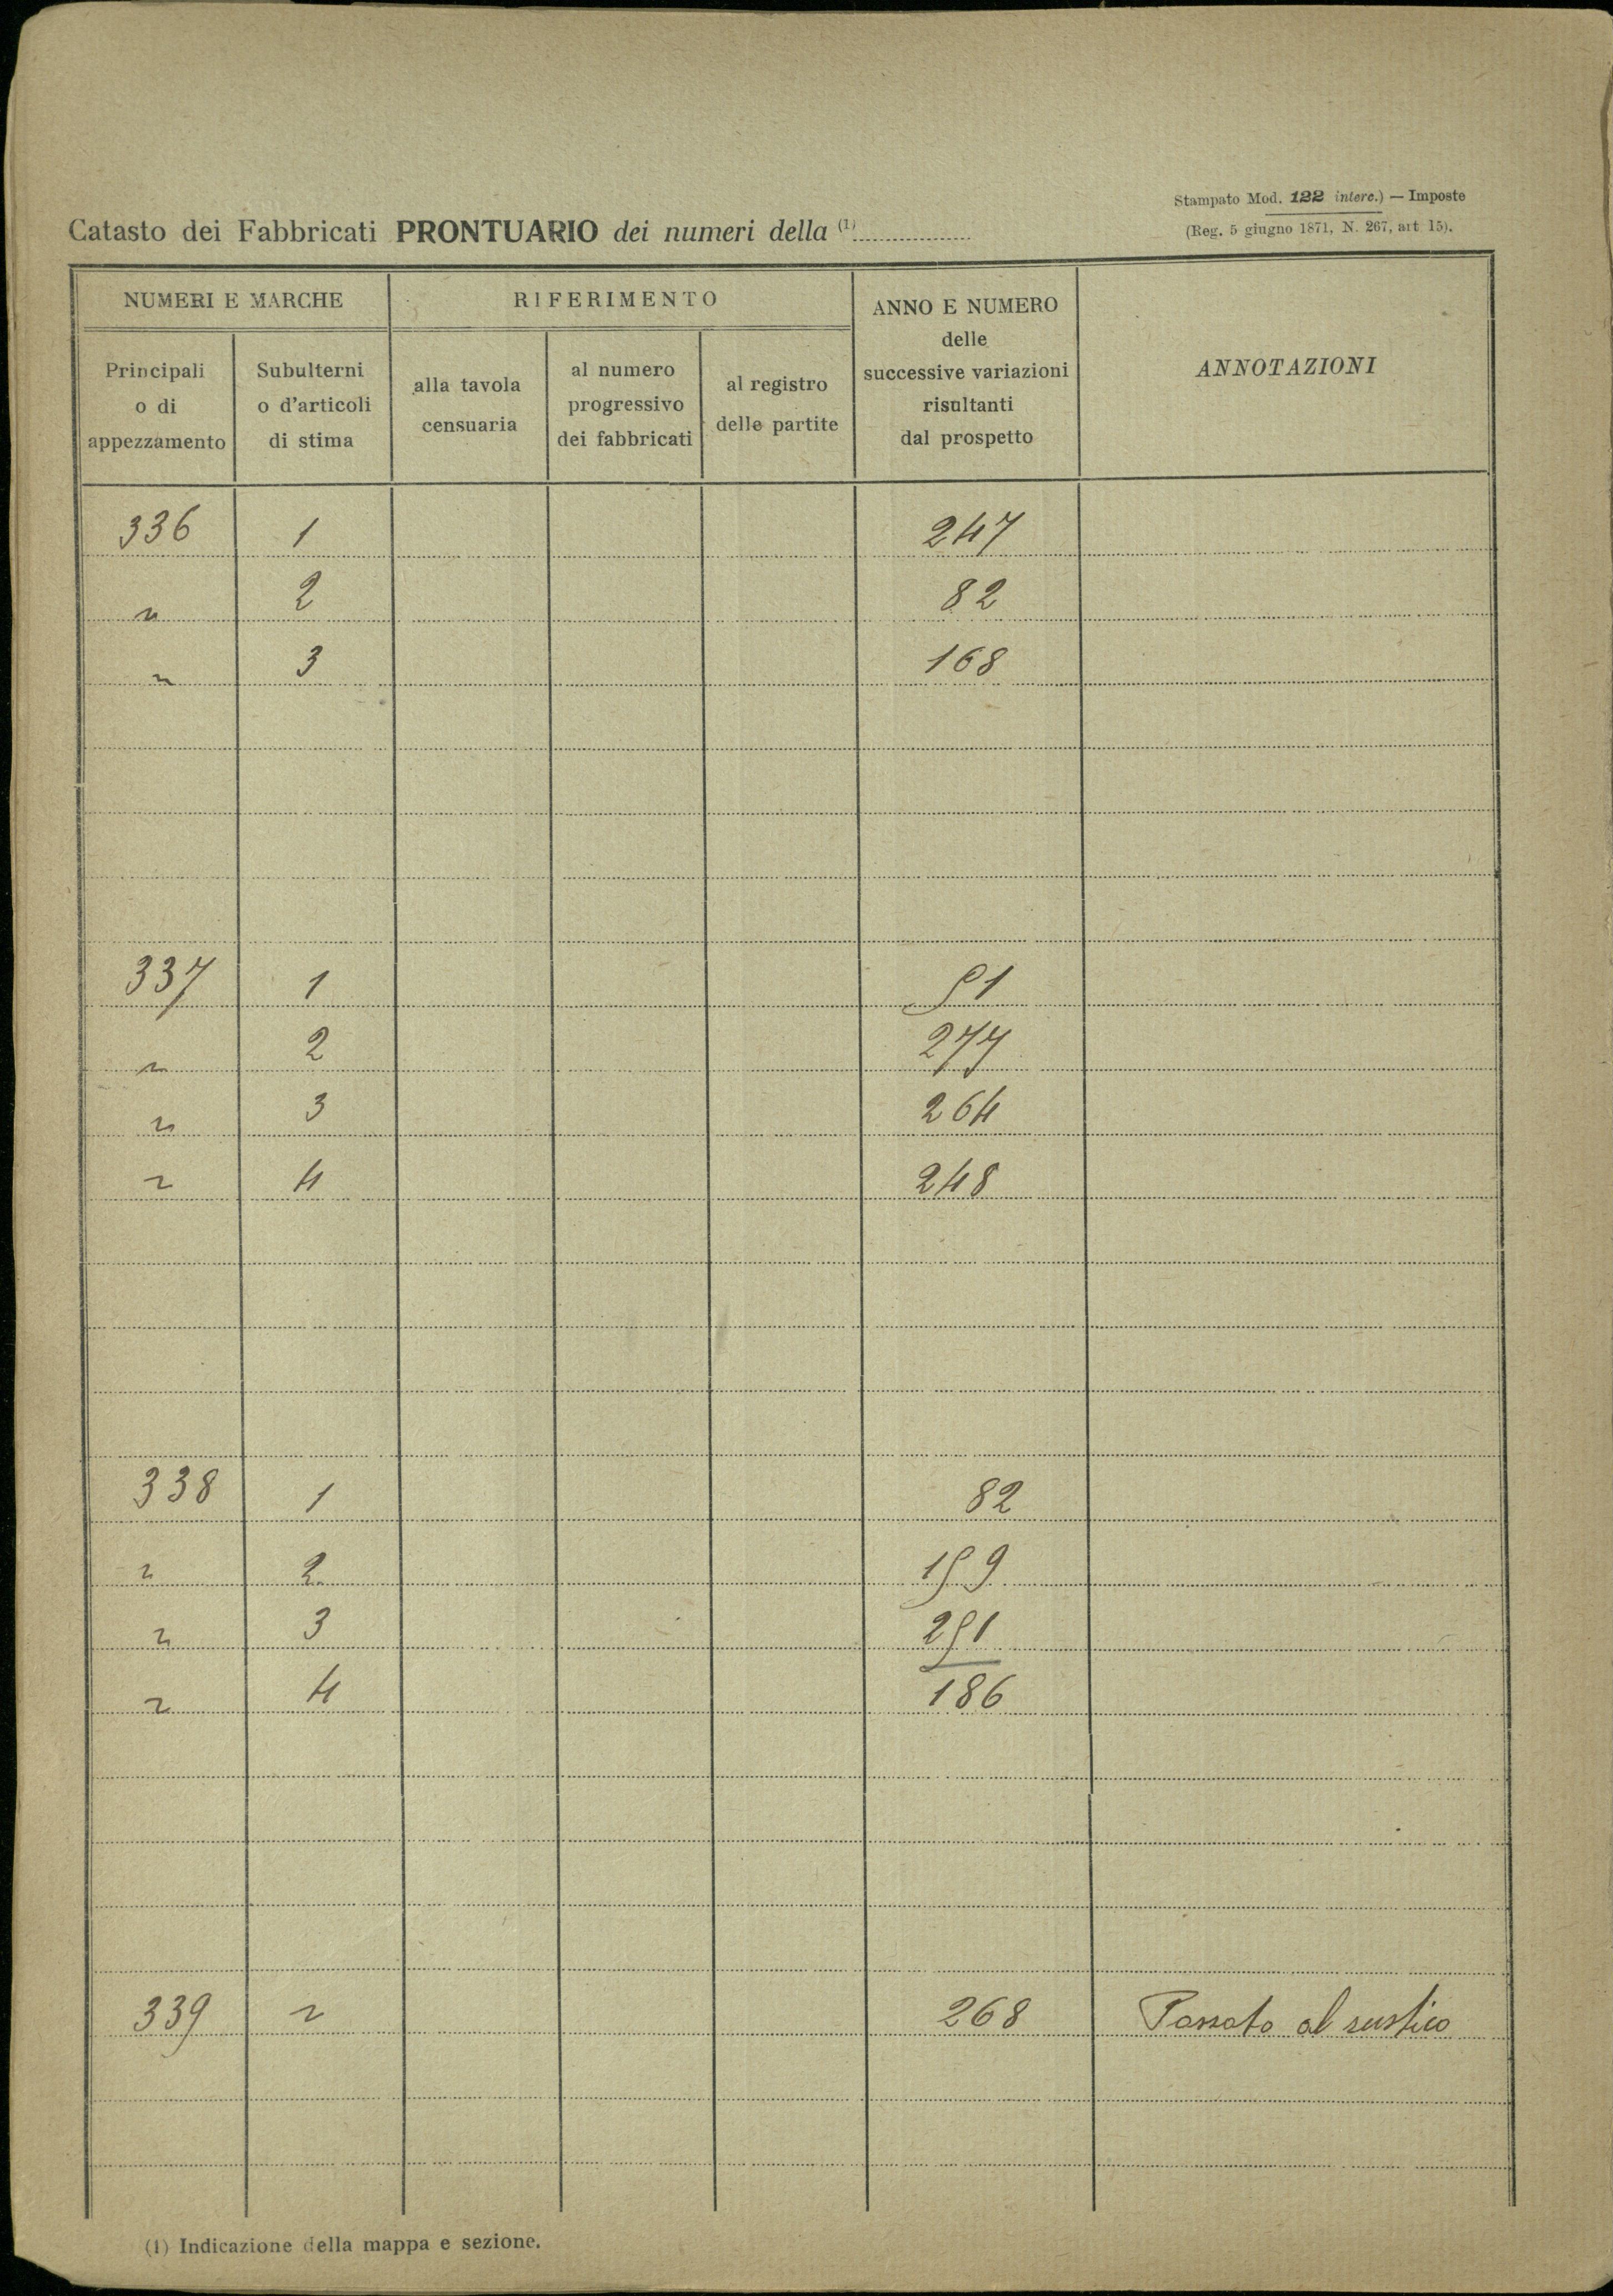 Stampato Mod. 122 interc.) — Imposte
(Reg. 5 giugno 1871, N. 267, art 15).
Catasto dei Fabbricati PRONTUARIO dei numeri della (1)
NUMERI E MARCHE
Principali
o di
appezzamento
Subulterni
o d'articoli
di stima
RIFERIMENTO
alla tavola
censuaria
al numero
progressivo
dei fabbricati
al registro
delle partite
ANNO E NUMERO
delle
successive variazioni
risultanti
dal prospetto
ANNOTAZIONI
336 1 247
" 2 82
" 3 168
337 1 51
" 2 277
" 3 264
" 4 248
338 1 82
" 2 159
" 3 251
" 4 186
339 " 268 Passato al rustico
(1) Indicazione della mappa e sezione.